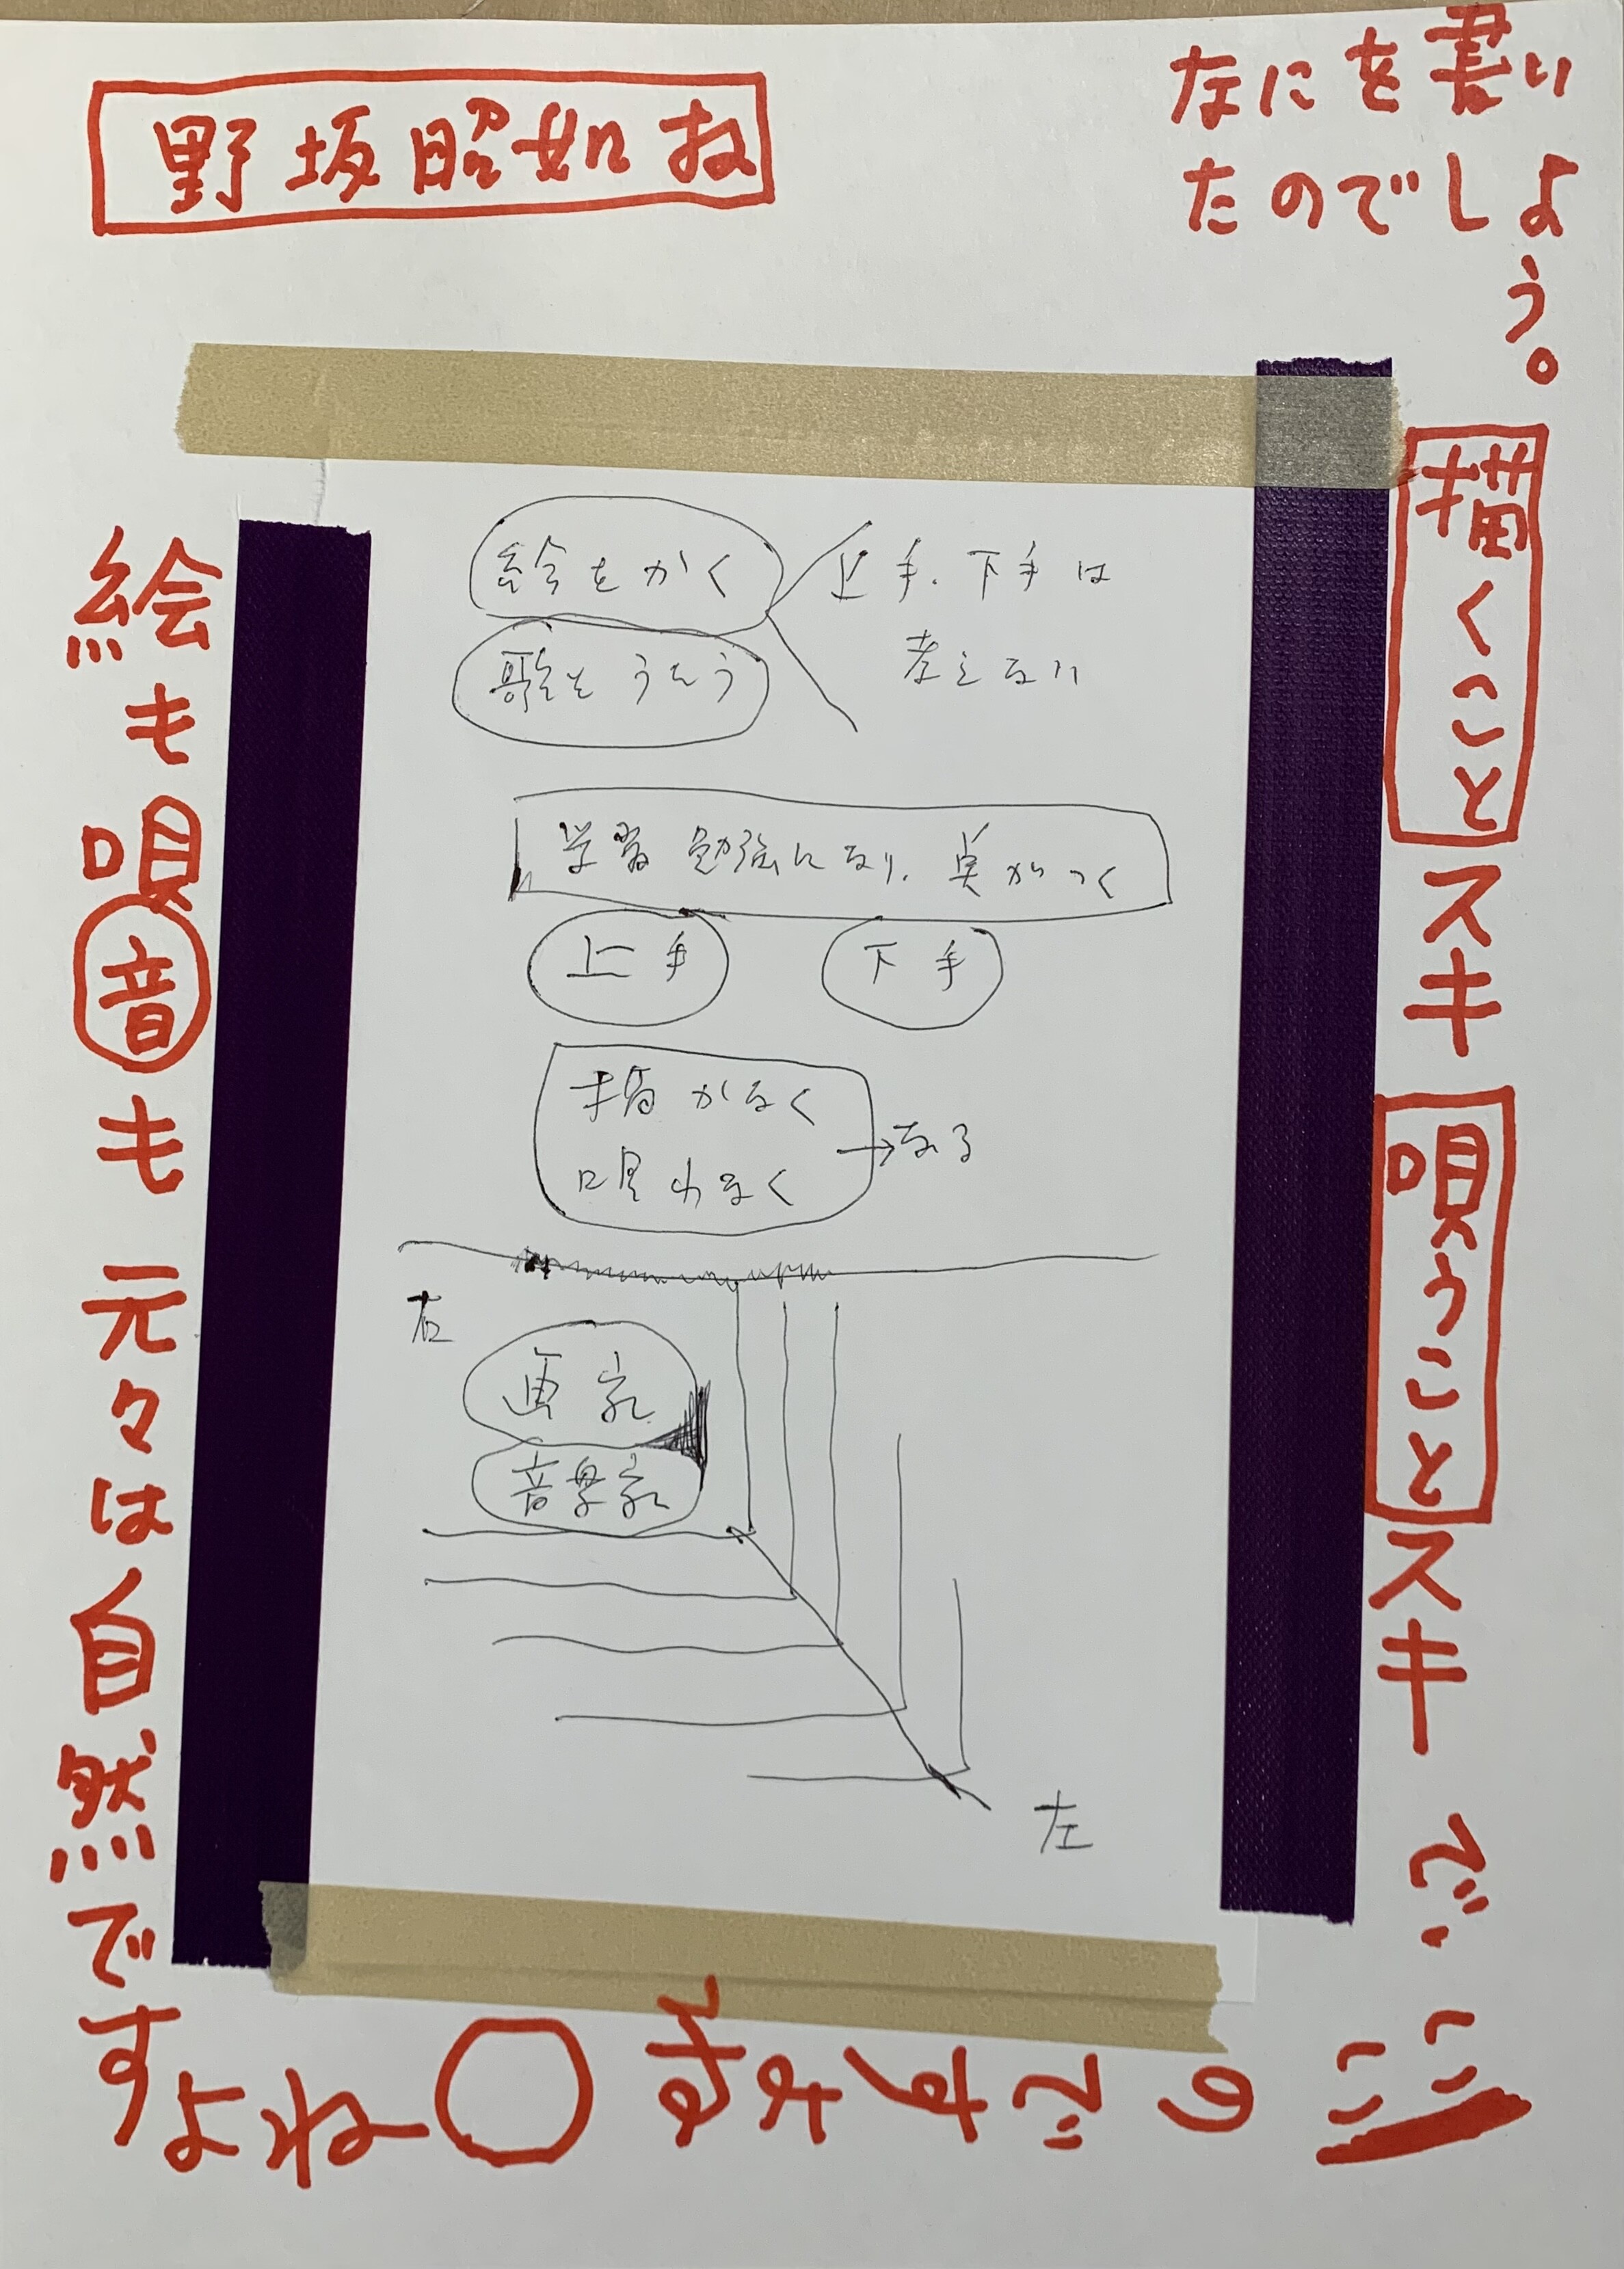 野坂昭如さ
なにを書い
たのでしょ
う。
描くことスキ
唄うことスキ
で
のですよね
絵も唄音も元々は自然です
よね
絵をかく
上手、下手は
考えない
歌をうたう
学習 勉強になり、実がつく
上手
下手
描かなく
唄わなく
→なる
右
画家
音楽家
左